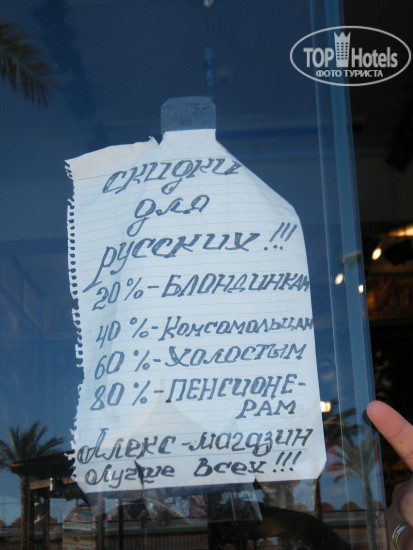 TOP Hotels
ФОТО ТУРИСТА
скидки
для
русских!!!
20%-БЛОНДИНКАМ
40%-КОМСОМОЛЬЦАМ
60%-ХОЛОСТЫМ
80%-ПЕНСИОНЕ-
РАМ
Алекс-магазин
Лучше всех!!!